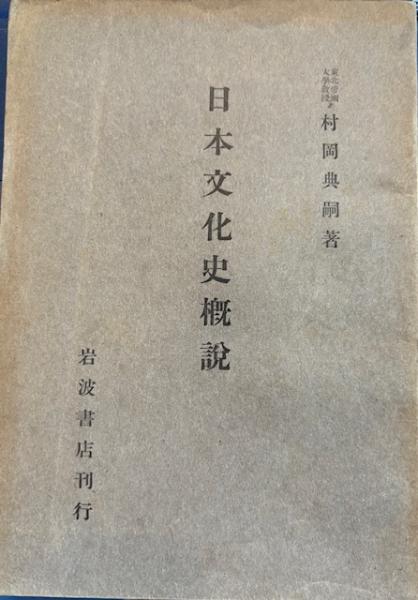 東北帝國
大學敎授
村岡典嗣著
日本文化史槪說
岩波書店刊行